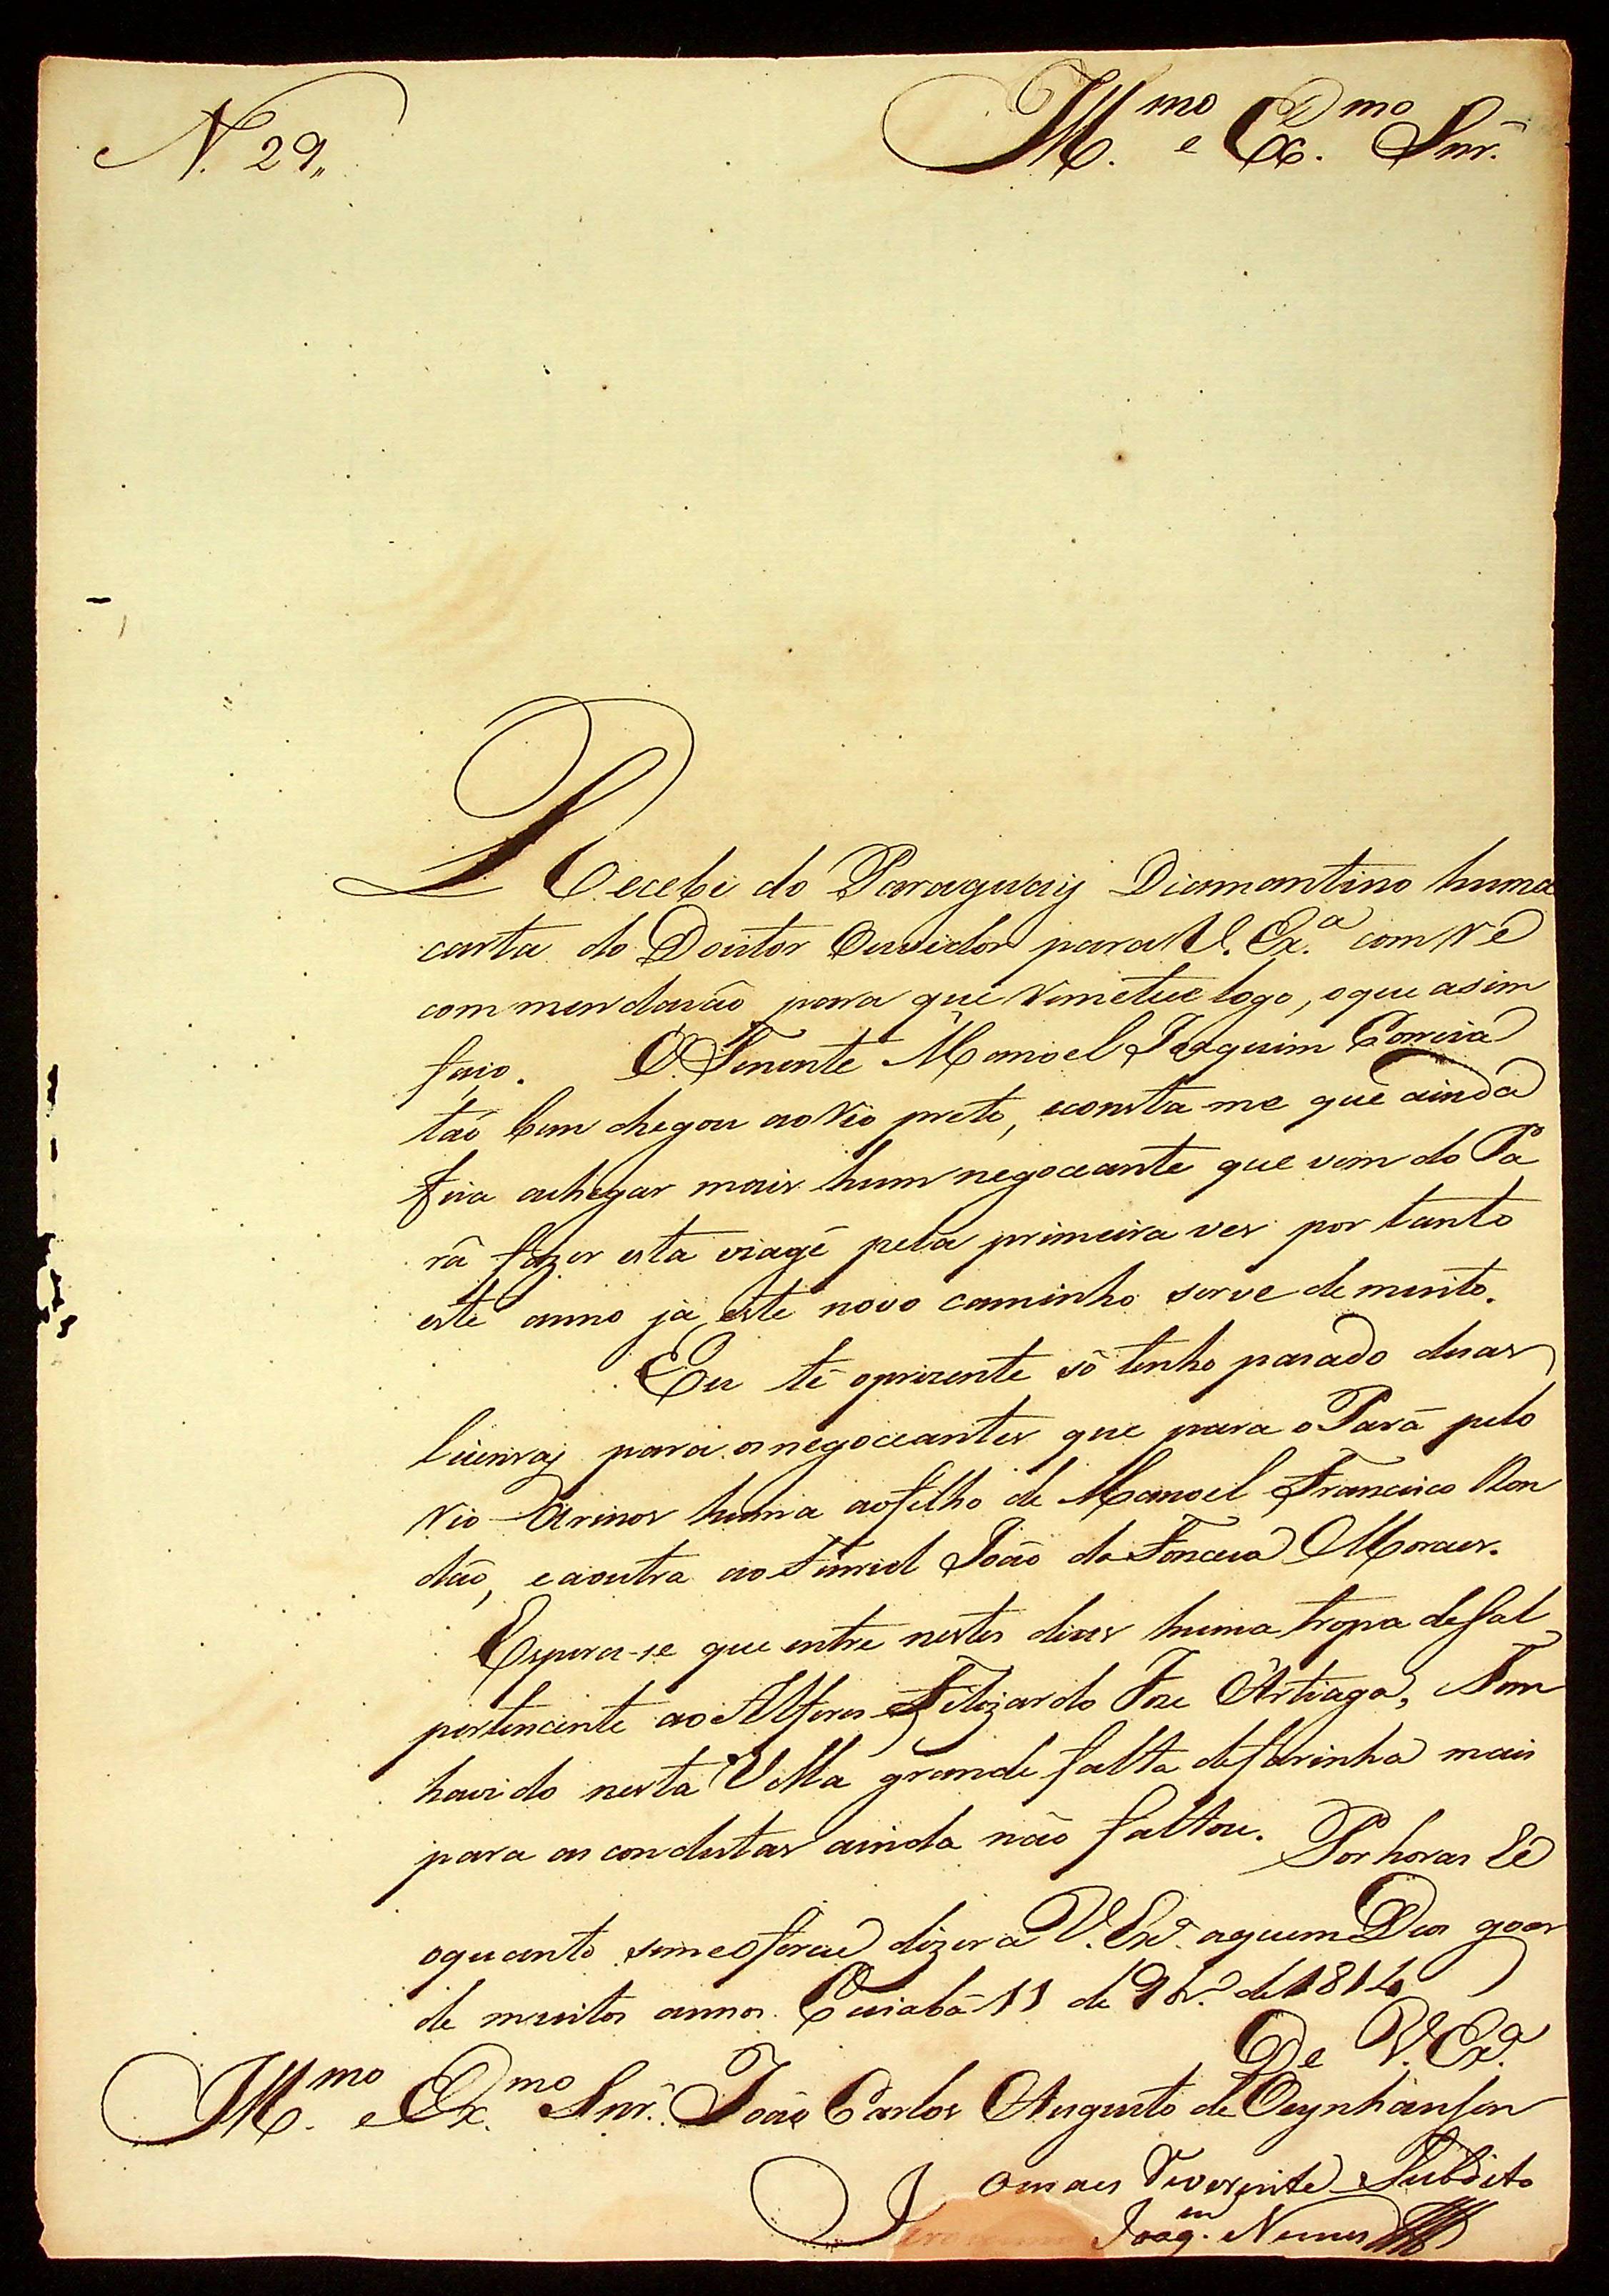 N. 29,,
Ill.mo e Ex.mo Snr.
Recebi do Paraguay Diamantino huma
carta do Doutor Ouvidor para V. Ex.a com re
commendasão para que remetese logo, o que asim
faço. O Tenente Manoel Joaquim Correia
táo bem chegou ao rio preto, e consta me que ainda
fica a chegar mais hum negoceante que vem do Pa
râ fazer esta viagẽ pela primeira ves por tanto
este anno já este novo caminho serve de muito.
Eu té o prezente só tenho pasado duas
licensas para os negoceantes que para o Parâ pelo
rio Arinos huma ao filho de Manoel Francisco Ron
dáo, e a outra ao João da Fonceca Moraes.
Espera-se que entre nestes dias huma tropa de sal
pertencente ao Alferes Felizardo Joze Artiaga, Tem
havido nesta Villa grande falta de farinha mais
para as condutas ainda não faltou. Por horas hé
o quanto se me oferece dizer a V. Ex.a a quem Deos goar
de muitos annos. Cuiabá 11 de 9br.o de 1814
De V. Ex.a
Ill.mo e Ex.mo Snr. João Carlos Augusto de Oeynhausen
O mais Reverente Subdito
Joaq.m Nunes